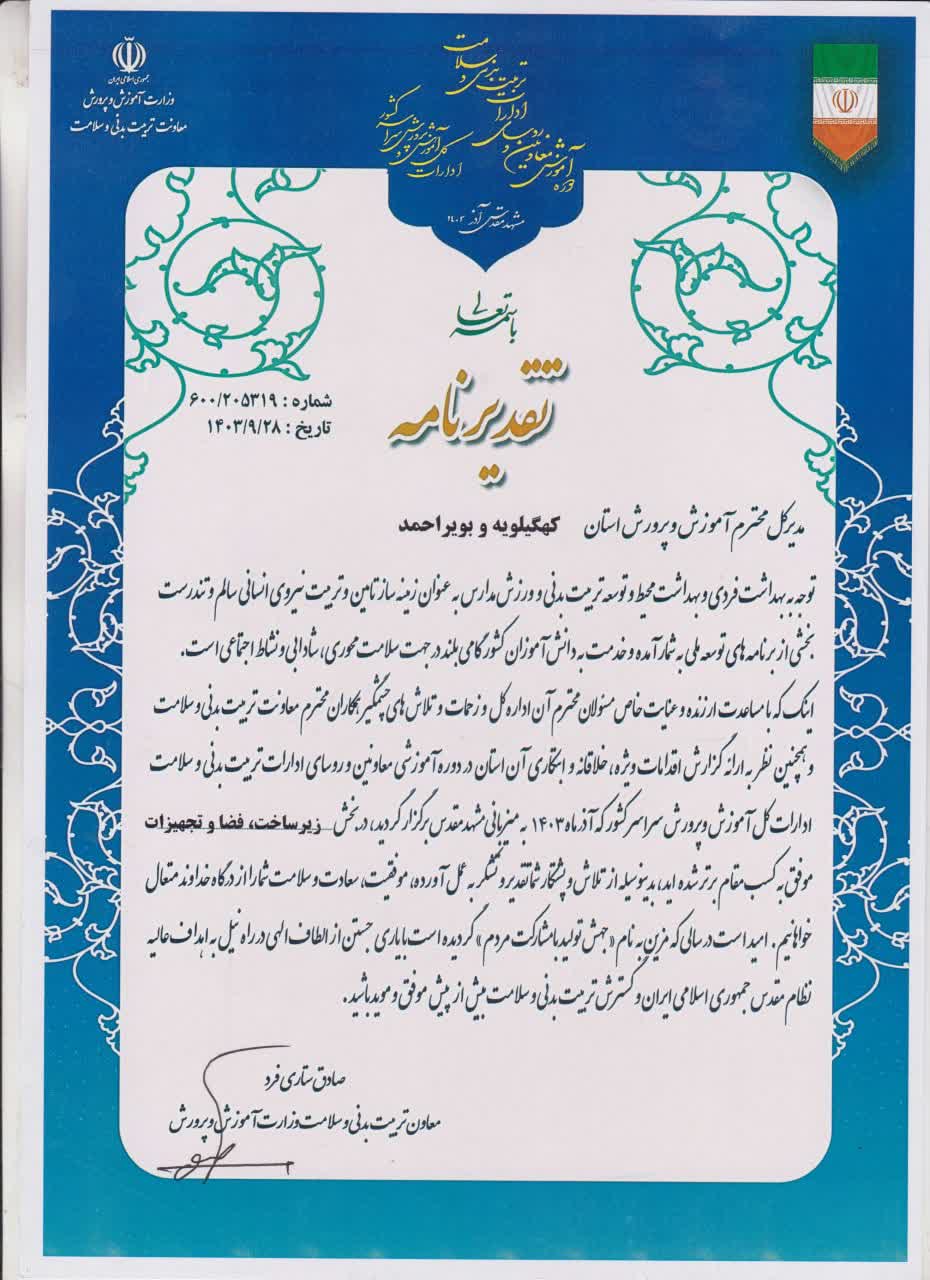 جمهوری اسلامی ایران
وزارت آموزش و پرورش
معاونت تربیت بدنی و سلامت
دوره آموزشی معاونین و روسای ادارات تربیت بدنی و سلامت
ادارات کل آموزش و پرورش سراسر کشور
مشهد مقدس آذر ۱۴۰۳
باسمه تعالی
تقدیرنامه
شماره : ۶۰۰/۲۰۵۳۱۹
تاریخ : ۱۴۰۳/۹/۲۸
مدیرکل محترم آموزش و پرورش استان کهگیلویه و بویراحمد
توجه به بهداشت فردی و بهداشت محیط و توسعه تربیت بدنی و ورزش مدارس به عنوان زمینه ساز تامین و تربیت نیروی انسانی سالم و تندرست
بخشی از برنامه های توسعه ملی به شمار آمده و خدمت به دانش آموزان کشور گامی بلند در جهت سلامت محوری، شادابی و نشاط اجتماعی است.
اینک که با مساعدت ارزنده و عنایت خاص مسئولان محترم آن اداره کل و زحمات و تلاش های چشمگیر همکاران محترم معاونت تربیت بدنی و سلامت
و همچنین نظر به ارائه گزارش اقدامات ویژه، خلاقانه و ابتکاری آن استان در دوره آموزشی معاونین و روسای ادارات تربیت بدنی و سلامت
ادارات کل آموزش و پرورش سراسر کشور که آذر ماه ۱۴۰۳ به میزبانی مشهد مقدس برگزار گردید، در بخش زیرساخت، فضا و تجهیزات
موفق به کسب مقام برتر شده اید، بدینوسیله از تلاش و پشتکار شما تقدیر و تشکر به عمل آورده، موفقیت، سعادت و سلامت شما را از درگاه خداوند متعال
خواهانیم. امید است در سالی که مزین به نام «جهش تولید با مشارکت مردم» گردیده است با یاری جستن از الطاف الهی در راه نیل به اهداف عالیه
نظام مقدس جمهوری اسلامی ایران و گسترش تربیت بدنی و سلامت بیش از پیش موفق و موید باشید.
صادق ستاری فرد
معاون تربیت بدنی و سلامت وزارت آموزش و پرورش